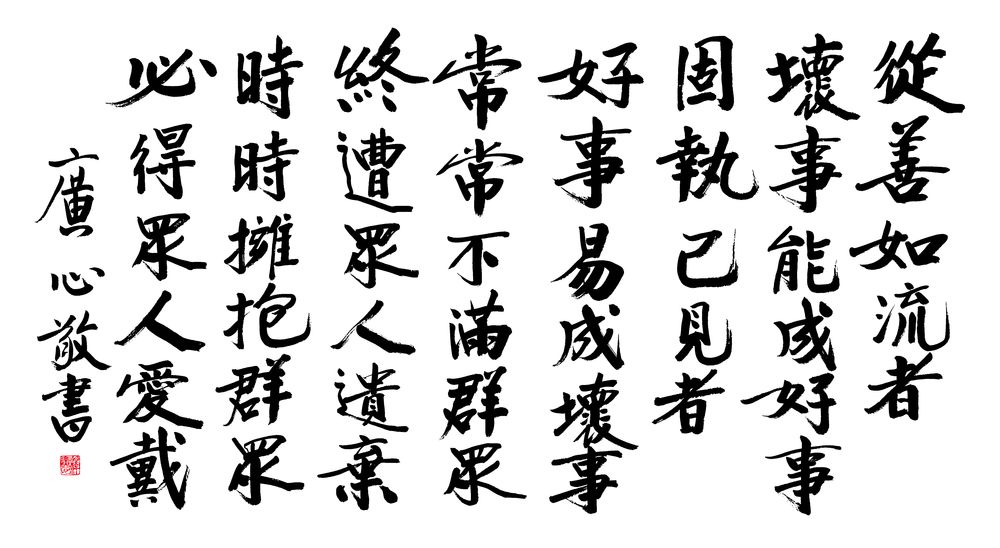 從善如流者
壞事能成好事
固執己見者
好事易成壞事
常常不滿群眾
終遭眾人遺棄
時時擁抱群眾
必得眾人愛戴
廣心敬書